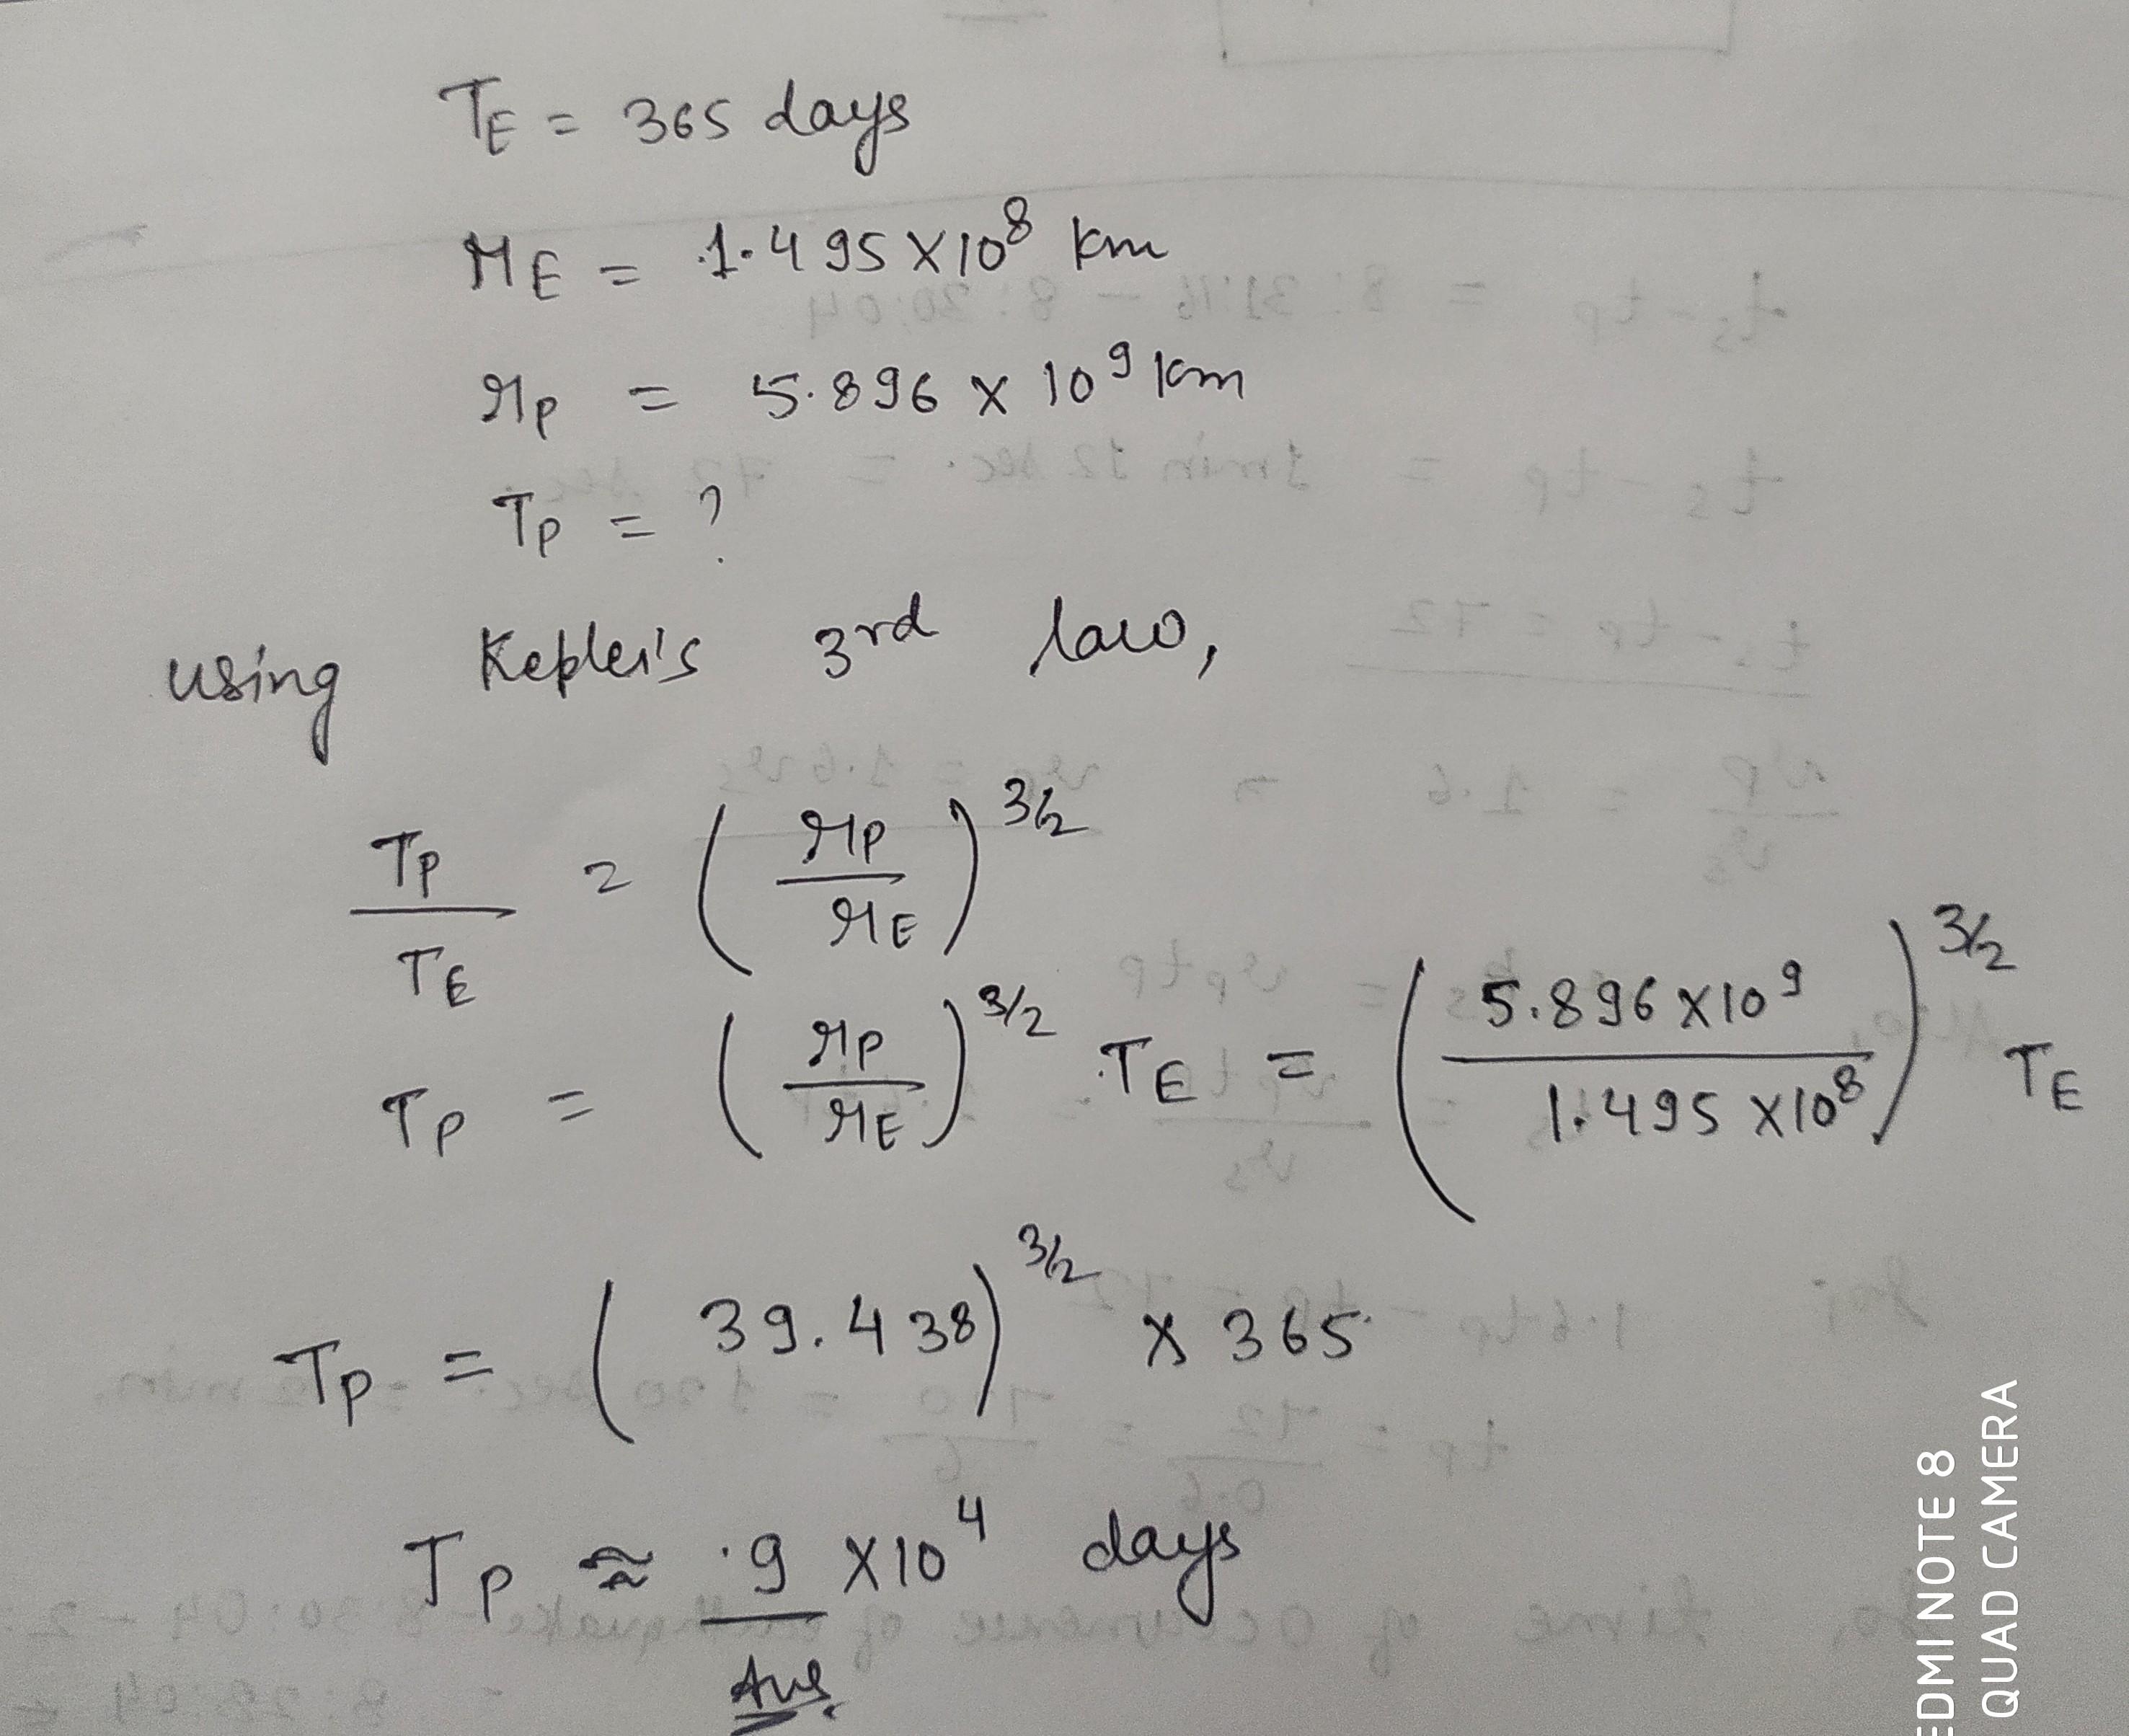 TE = 365 days
rE = 1.495 X10^8 km
rp = 5.896 x 10^9 km
Tp = ?
using Kepler's 3rd law,
TP/TE = (rP/rE)^3/2
TP = (rP/rE)^3/2 . TE = (5.896 X10^9 / 1.495 X10^8)^3/2 TE
Tp = (39.438)^3/2 x 365
Tp ≈ .9 X10^4 days
Ans.
EDMI NOTE 8
QUAD CAMERA